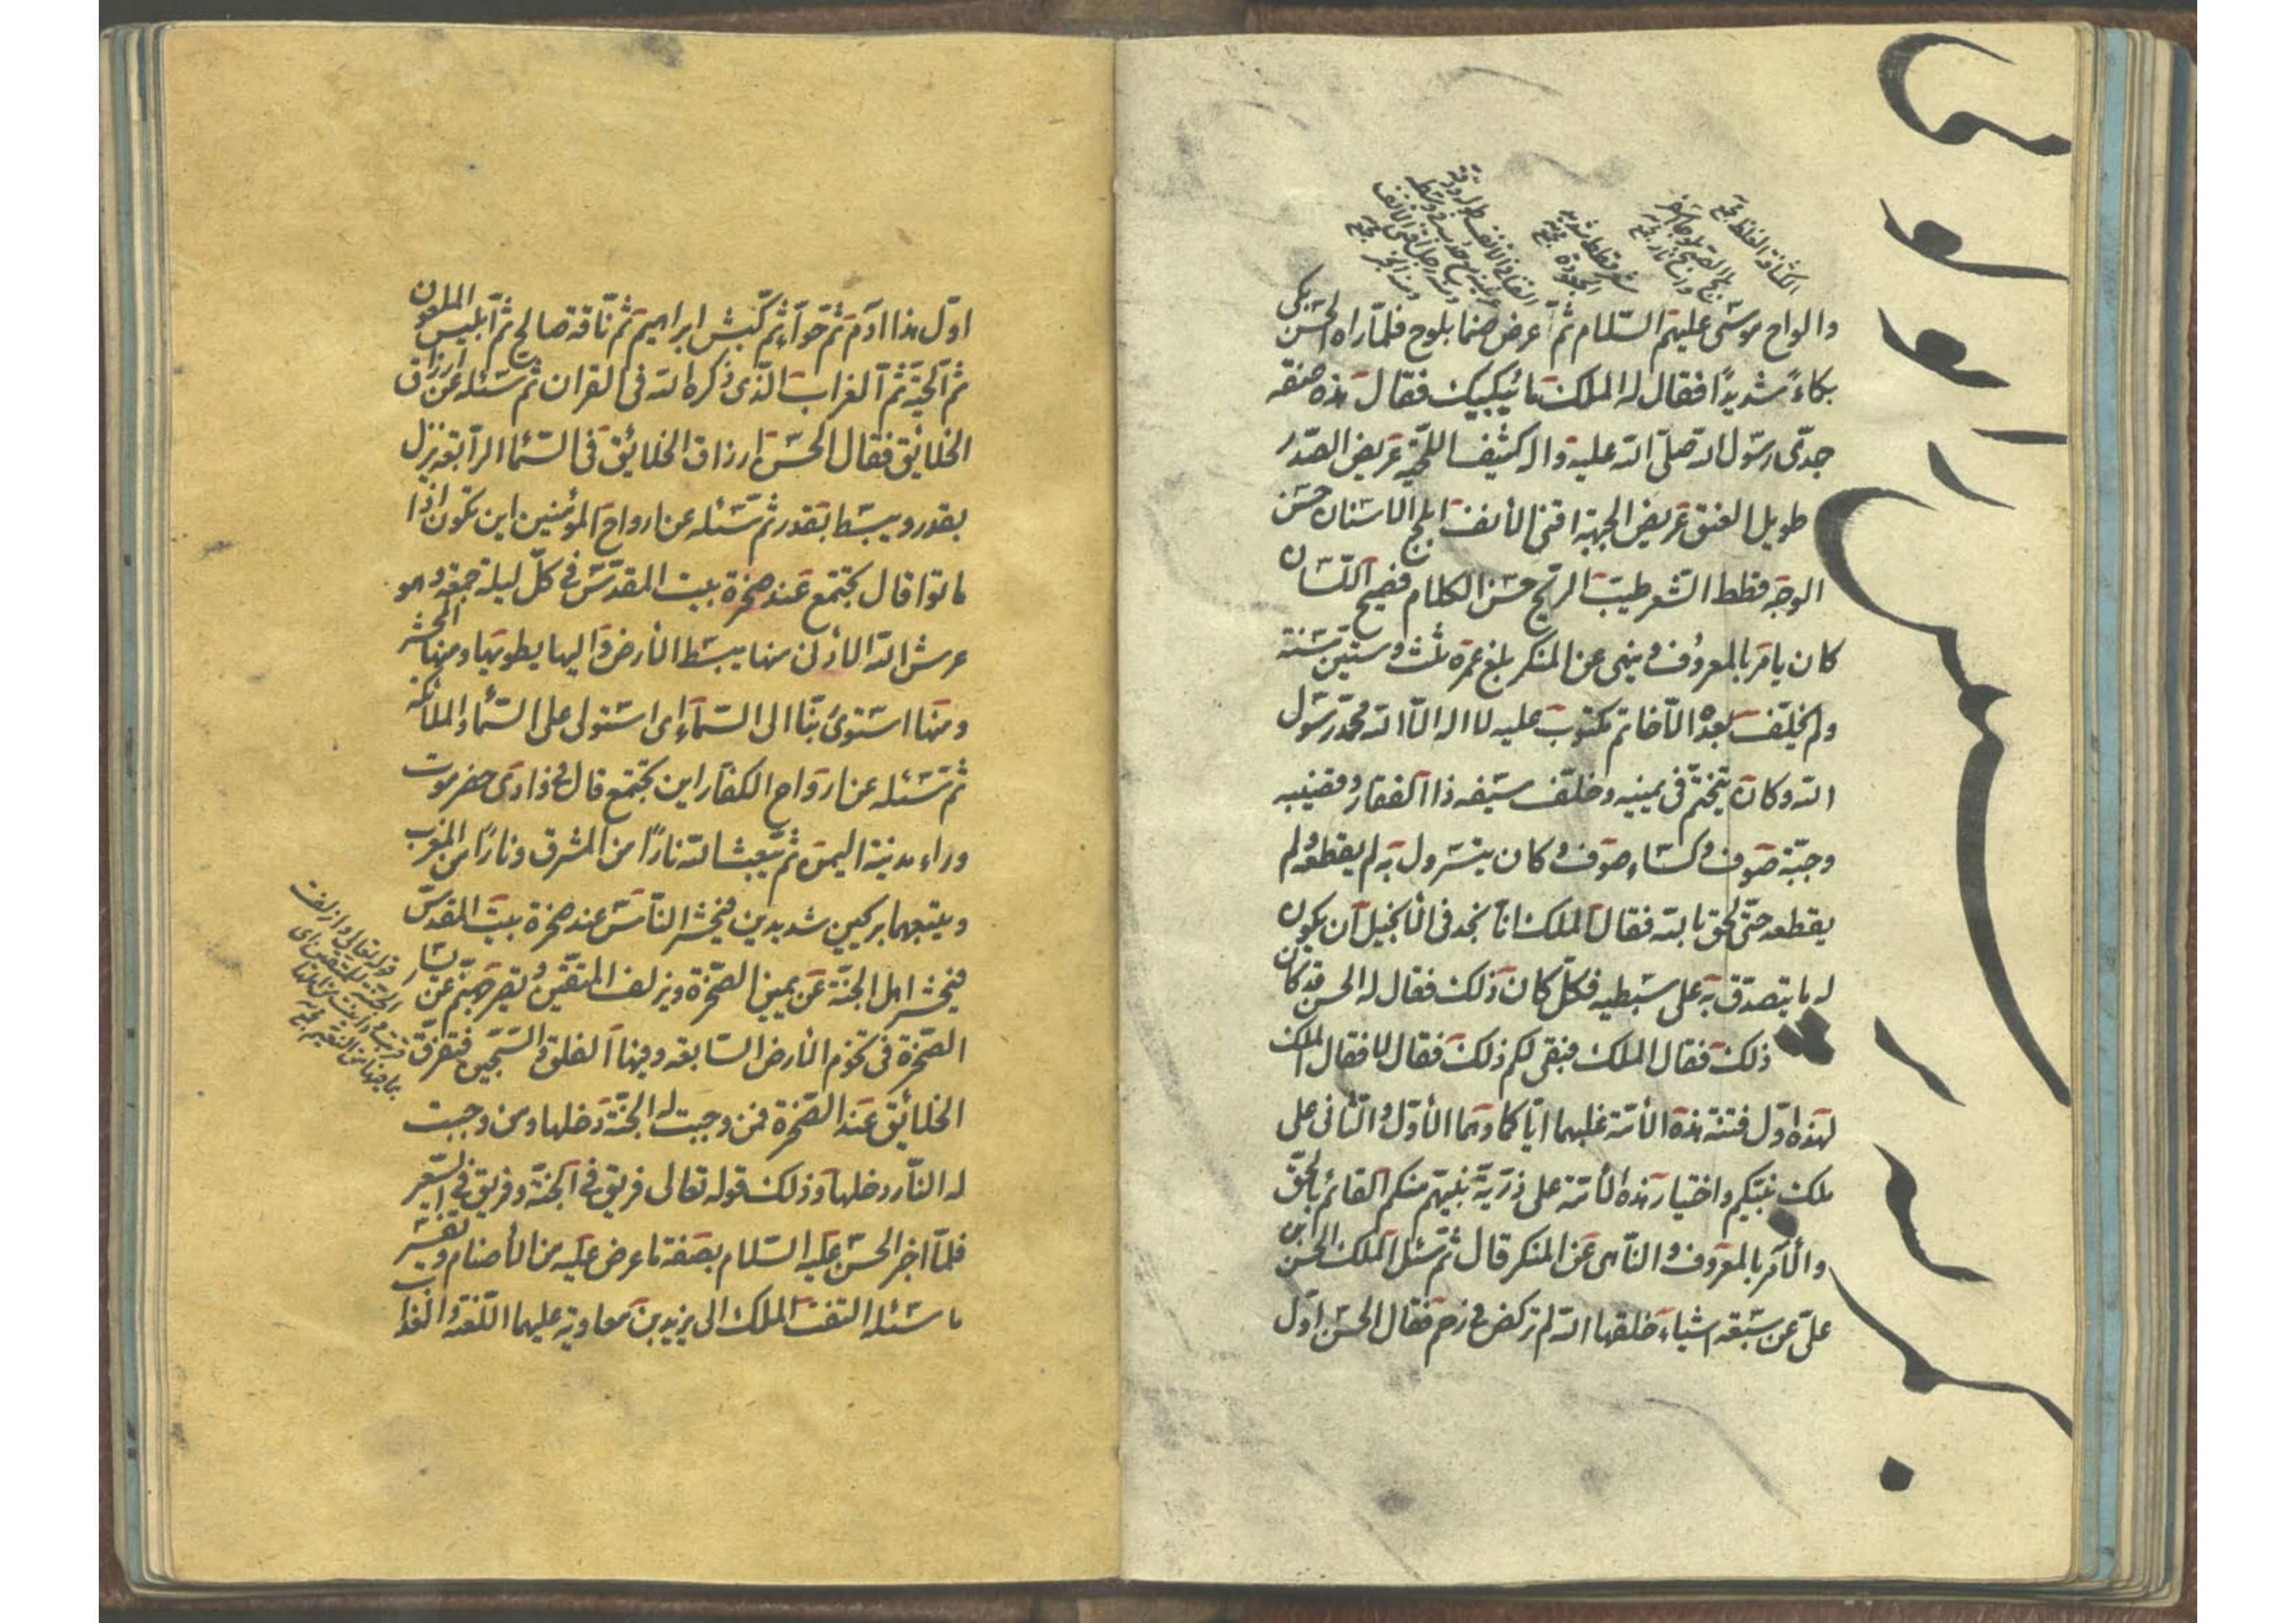 والواح موسی علیهم السّلام ثمّ عرض صنما بلوح فلمّا راه الحسن بکی
بکاءً شدیدًا فقال له الملک ما یُبکیک فقال هذه صفة
جدّی رسول الله صلّی الله علیه واله کثیف اللحیة عریض الصّدر
طویل العنق عریض الجبهة اقنی الأنف ابلج الاسنان حسن
الوجه قطط الشّعر طیّب الرّیح حسن الکلام فصیح اللّسان
کان یامر بالمعروف و ینهی عن المنکر بلغ عمره ثلث و ستّین سنة
ولم یخلّف بعده الّا خاتم مکتوب علیه لا اله الّا الله محمّد رسول
الله و کان یتختّم فی یمینه و خلّف سیفه ذا الفقار و قضیبه
وجبّة صوف و کساء صوف و کان یتسرول به لم یقطعه ولم
یقطعه حتّی لحق بالله فقال الملک انّا نجد فی الأنجیل ان یکون
له ما یتصدّق به علی سبطیه فکلّ کان ذلک فقال له الحسن قد کان
ذلک فقال الملک فبقی لکم ذلک فقال لا فقال الملک
لهذه اوّل فتنة هذه الأمّة علیها ایّاکما وهما الأوّل و الثّانی علی
ملک نبیّکم و اختیار هذه الأمّة علی ذرّیّة نبیّهم منکم القائم بالحقّ
والآمر بالمعروف و النّاهی عن المنکر قال ثمّ سئل الملک الحسن ابن
علیّ عن سبعة اشیاء خلقها الله لم ترکض فی رحم فقال الحسن اوّل
اوّل هذا ادم ثمّ حوّاء ثمّ کبش ابراهیم ثمّ ناقة صالح ثمّ ابلیس الملعون
ثمّ الحیّة ثمّ الغراب الّذی ذکره الله فی القران ثمّ سئله عن ارزاق
الخلایق فقال الحسن ارزاق الخلائق فی السّماء الرّابعة ینزل
بقدر و یبسط بقدر ثمّ سئله عن ارواح المؤمنین این تکون اذا
ماتوا قال تجتمع عند صخرة بیت المقدّس فی کلّ لیلة جمعة و هو
عرش الله الأدنی منها یبسط الأرض و الیها یطویها و منها المحشر
ومنها استوی ربّنا الی السّماء ای استولی علی السّماء و الملائکة
ثمّ سئله عن ارواح الکفّار این تجتمع قال فی وادی حضرموت
وراء مدینة الیمن ثمّ یبعث الله نارًا من المشرق و نارًا من المغرب
ویتبعهما بریحین شدیدین فیحشر النّاس عند صخرة بیت المقدس
فیحشر اهل الجنّة عن یمین الصّخرة ویزلف المتّقین و تصیر جهنّم عن یسار
الصّخرة فی تخوم الأرض السّابعة وفیها الفلق و السّجّین فتفرّق
الخلائق عند الصّخرة فمن وجبت له الجنّة دخلها ومن وجبت
له النّار دخلها و ذلک قوله تعالی فریق فی الجنّة و فریق فی السّعیر
فلمّا اخبر الحسن علیه السّلام بصفة ما عرض علیه من الأصنام و تفسیر
ما سئله التفت الملک الی یزید بن معاویة علیهما اللّعنة و العذاب